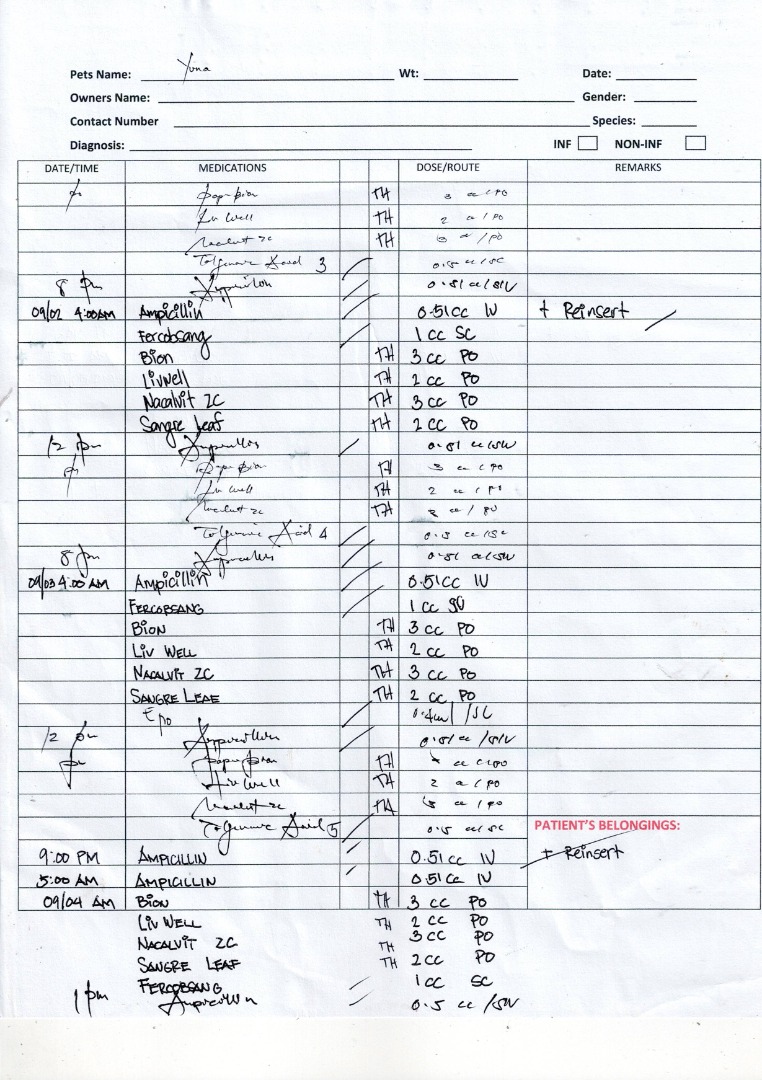 Pets Name: Yuna Wt: Date:
Owners Name: Gender:
Contact Number Species:
Diagnosis: INF NON-INF
DATE/TIME MEDICATIONS DOSE/ROUTE REMARKS
TH 3 cc / PO
Liv Well TH 2 cc / PO
Nacalvit ZC TH 3 cc / PO
3 0.5 cc / SC
8 pm 0.51 cc / SIV
09/02 4:00AM Ampicillin 0.51cc IV + Reinsert
Fercobsang 1 cc SC
Bion TH 3 cc PO
LivWell TH 2 cc PO
Nacalvit ZC TH 3 cc PO
Sangre Leaf TH 2 cc PO
12 pm 0.51 cc / SIV
TH 3 cc / PO
Liv Well TH 2 cc / PO
Nacalvit ZC TH cc / PO
4 0.5 cc / SC
8 pm 0.51 cc / SIV
09/03 4:00 AM Ampicillin 0.51cc IV
FERCOBSANG 1 cc
BION TH 3 cc PO
LIV WELL TH 2 cc PO
NACALVIT ZC TH 3 cc PO
SANGRE LEAF TH 2 cc PO
Epo 0.4ml / SC
12 pm 0.51 cc / SIV
TH cc PO
Liv Well TH 2 cc / PO
Nacalvit ZC TH 3 cc / PO
5 0.5 cc / SC PATIENT'S BELONGINGS:
9:00 PM AMPICILLIN 0.51 cc IV + Reinsert
5:00 AM AMPICILLIN 0.51 cc IV
09/04 AM BION TH 3 cc PO
LIV WELL TH 2 cc PO
NACALVIT ZC TH 3 cc PO
SANGRE LEAF TH 2 cc PO
FERCOBSANG 1 cc SC
1 pm 0.5 cc / SIV